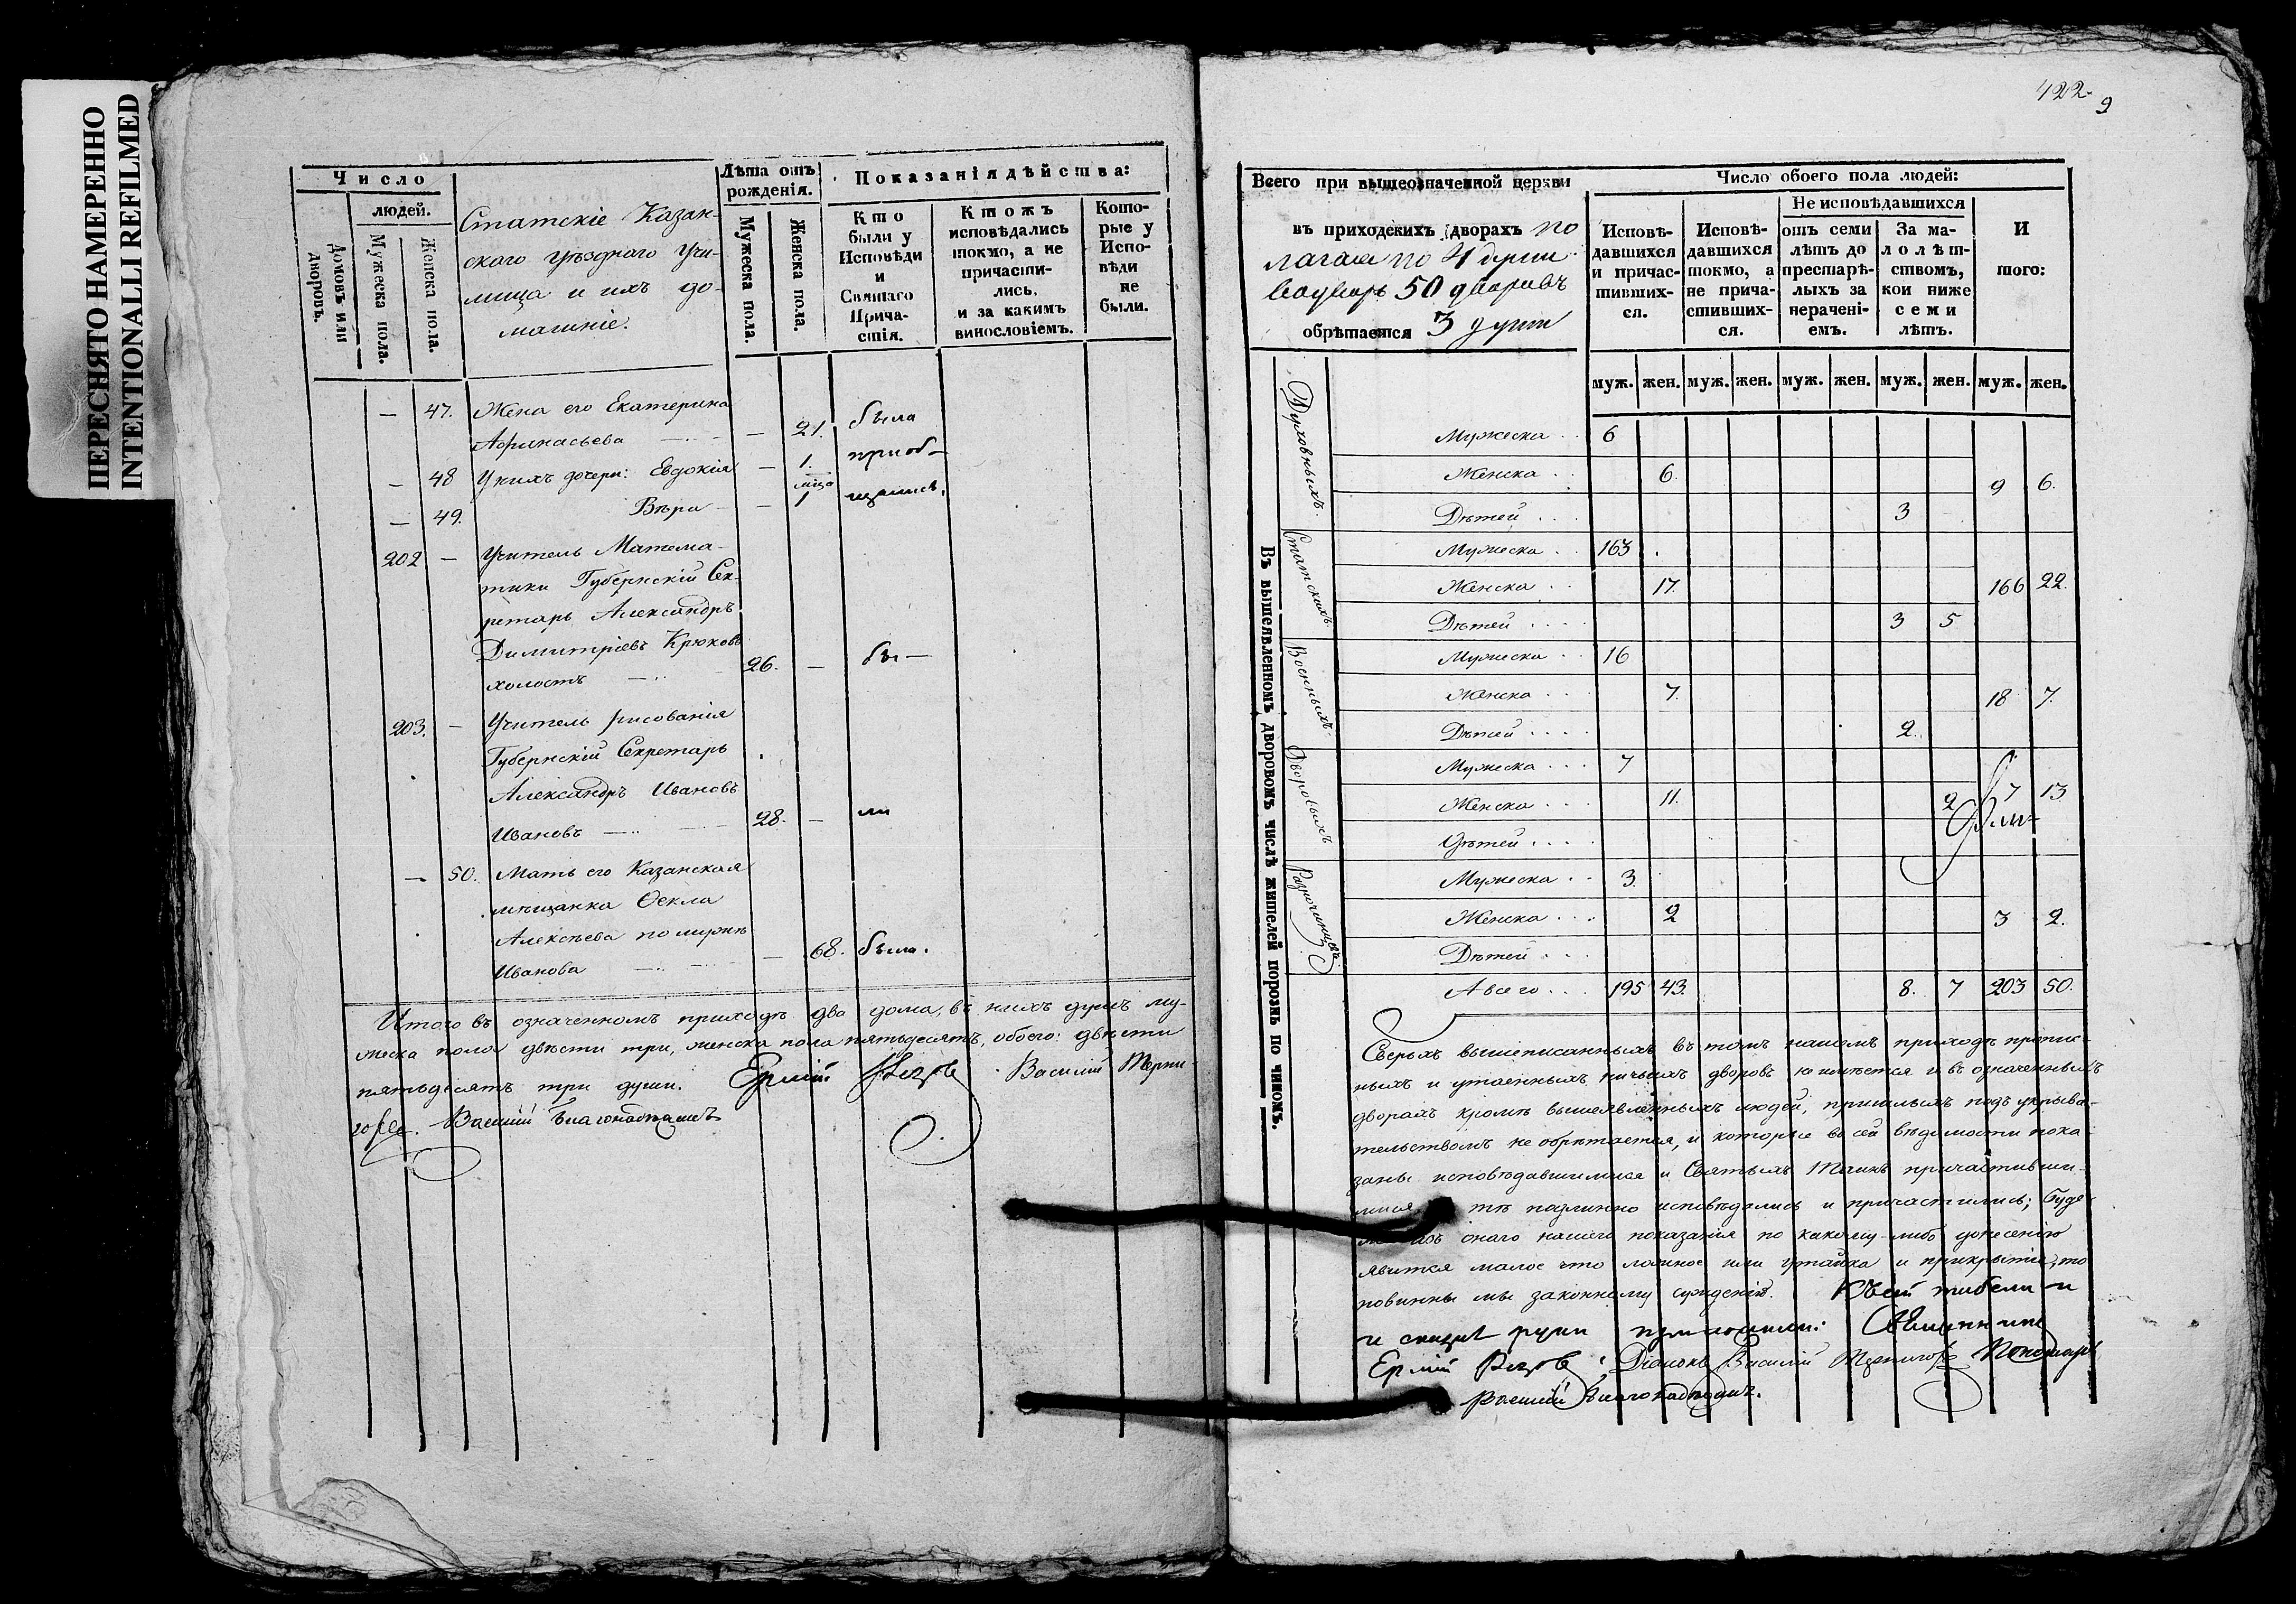 ПЕРЕСНЯТО НАМЕРЕННО
INTENTIONALLI REFILMED
Число
людей.
Домовъ или дворовъ.
Мужеска пола.
Женска пола.
Статскіе Казан-
скаго уѣзднаго Учи-
лища и ихъ до-
машніе.
Лѣта отъ рожденія.
Мужеска пола.
Женска пола.
Показанія дѣйства:
Кто были у Исповѣди и Святаго Причастія.
Ктожъ исповѣдались токмо, а не причастились, и за какимъ винословіемъ.
Которые у Исповѣди не были.
— 47. Жена его Екатерина
Афонасьева — 21. была
— 48 У нихъ дочери: Евдокія — 1. приоб-
— 49. Вѣра — 1 щались.
202 — Учитель Матема-
тики Губернскій Сек-
ретарь Александръ
Димитріевъ Крюковъ
холостъ 26. — бы—
203. — Учитель рисованія
Губернскій Секретарь
Александръ Ивановъ
Ивановъ 28. — ли
— 50. Мать его Казанская
мѣщанка Ѳекла
Алексѣева по мужѣ
Иванова — 68. была.
Итого въ означенномъ приходѣ два дома, въ нихъ душъ му-
жеска пола двѣсти три, женска пола пятьдесятъ, обоего: двѣсти
пятьдесятъ три души. Ермій Василій
Василій Благонадеждинъ
422
9
Всего при вышеозначенной церкви
въ приходскихъ дворахъ по
лагая по 4 души
50 дворовъ
обрѣтается 3 души
Число обоего пола людей:
Исповѣдавшихся и причастившихся.
Исповѣдавшихся токмо, а не причастившихся.
Не исповѣдавшихся
отъ семи лѣтъ до престарѣлыхъ за нераченіемъ.
За малолѣтствомъ, кои ниже семи лѣтъ.
Итого:
муж. жен. муж. жен. муж. жен. муж. жен. муж. жен.
Въ вышеявленномъ дворовомъ числѣ жителей порознь по чиномъ.
Духовныхъ.
Мужеска . . 6
Женска . . 6. 9 6.
Дѣтей . . . 3
Статскихъ
Мужеска . . 163
Женска . . 17. 166 22.
Дѣтей . . . . 3 5
Военныхъ.
Мужеска . . 16
Женска . . . 7. 18 7.
Дѣтей . . . . 2.
Дворовыхъ
Мужеска . . . 7
Женска . . . 11. 2 7 13
Дѣтей . . . .
Разночинцовъ.
Мужеска . . 3.
Женска . . . 2 3 2.
Дѣтей . . .
А всего . . . 195 43. 8. 7 203 50.
Сверьхъ вышеписанныхъ въ томъ нашемъ приходѣ пропис-
ныхъ и утаенныхъ ничьихъ дворовъ не имѣется и въ означенныхъ
дворахъ кромѣ вышеявленныхъ людей, пришлыхъ подъ укрыва-
тельствомъ не обрѣтается, и которые въ сей вѣдомости пока-
заны исповѣдавшимися и Святыхъ Таинъ причастивши-
мися тѣ подлинно исповѣдались и причастились; буде
онаго нашего показанія по какому-либо донесенію
явится малое что ложное или утайка и прикрытіе, то
повинны мы законному сужденію. Къ сей табели и
и скаскѣ руки приложили: Священникъ
Ермій Діаконъ Василій Пономарь
Василій Благонадеждинъ.